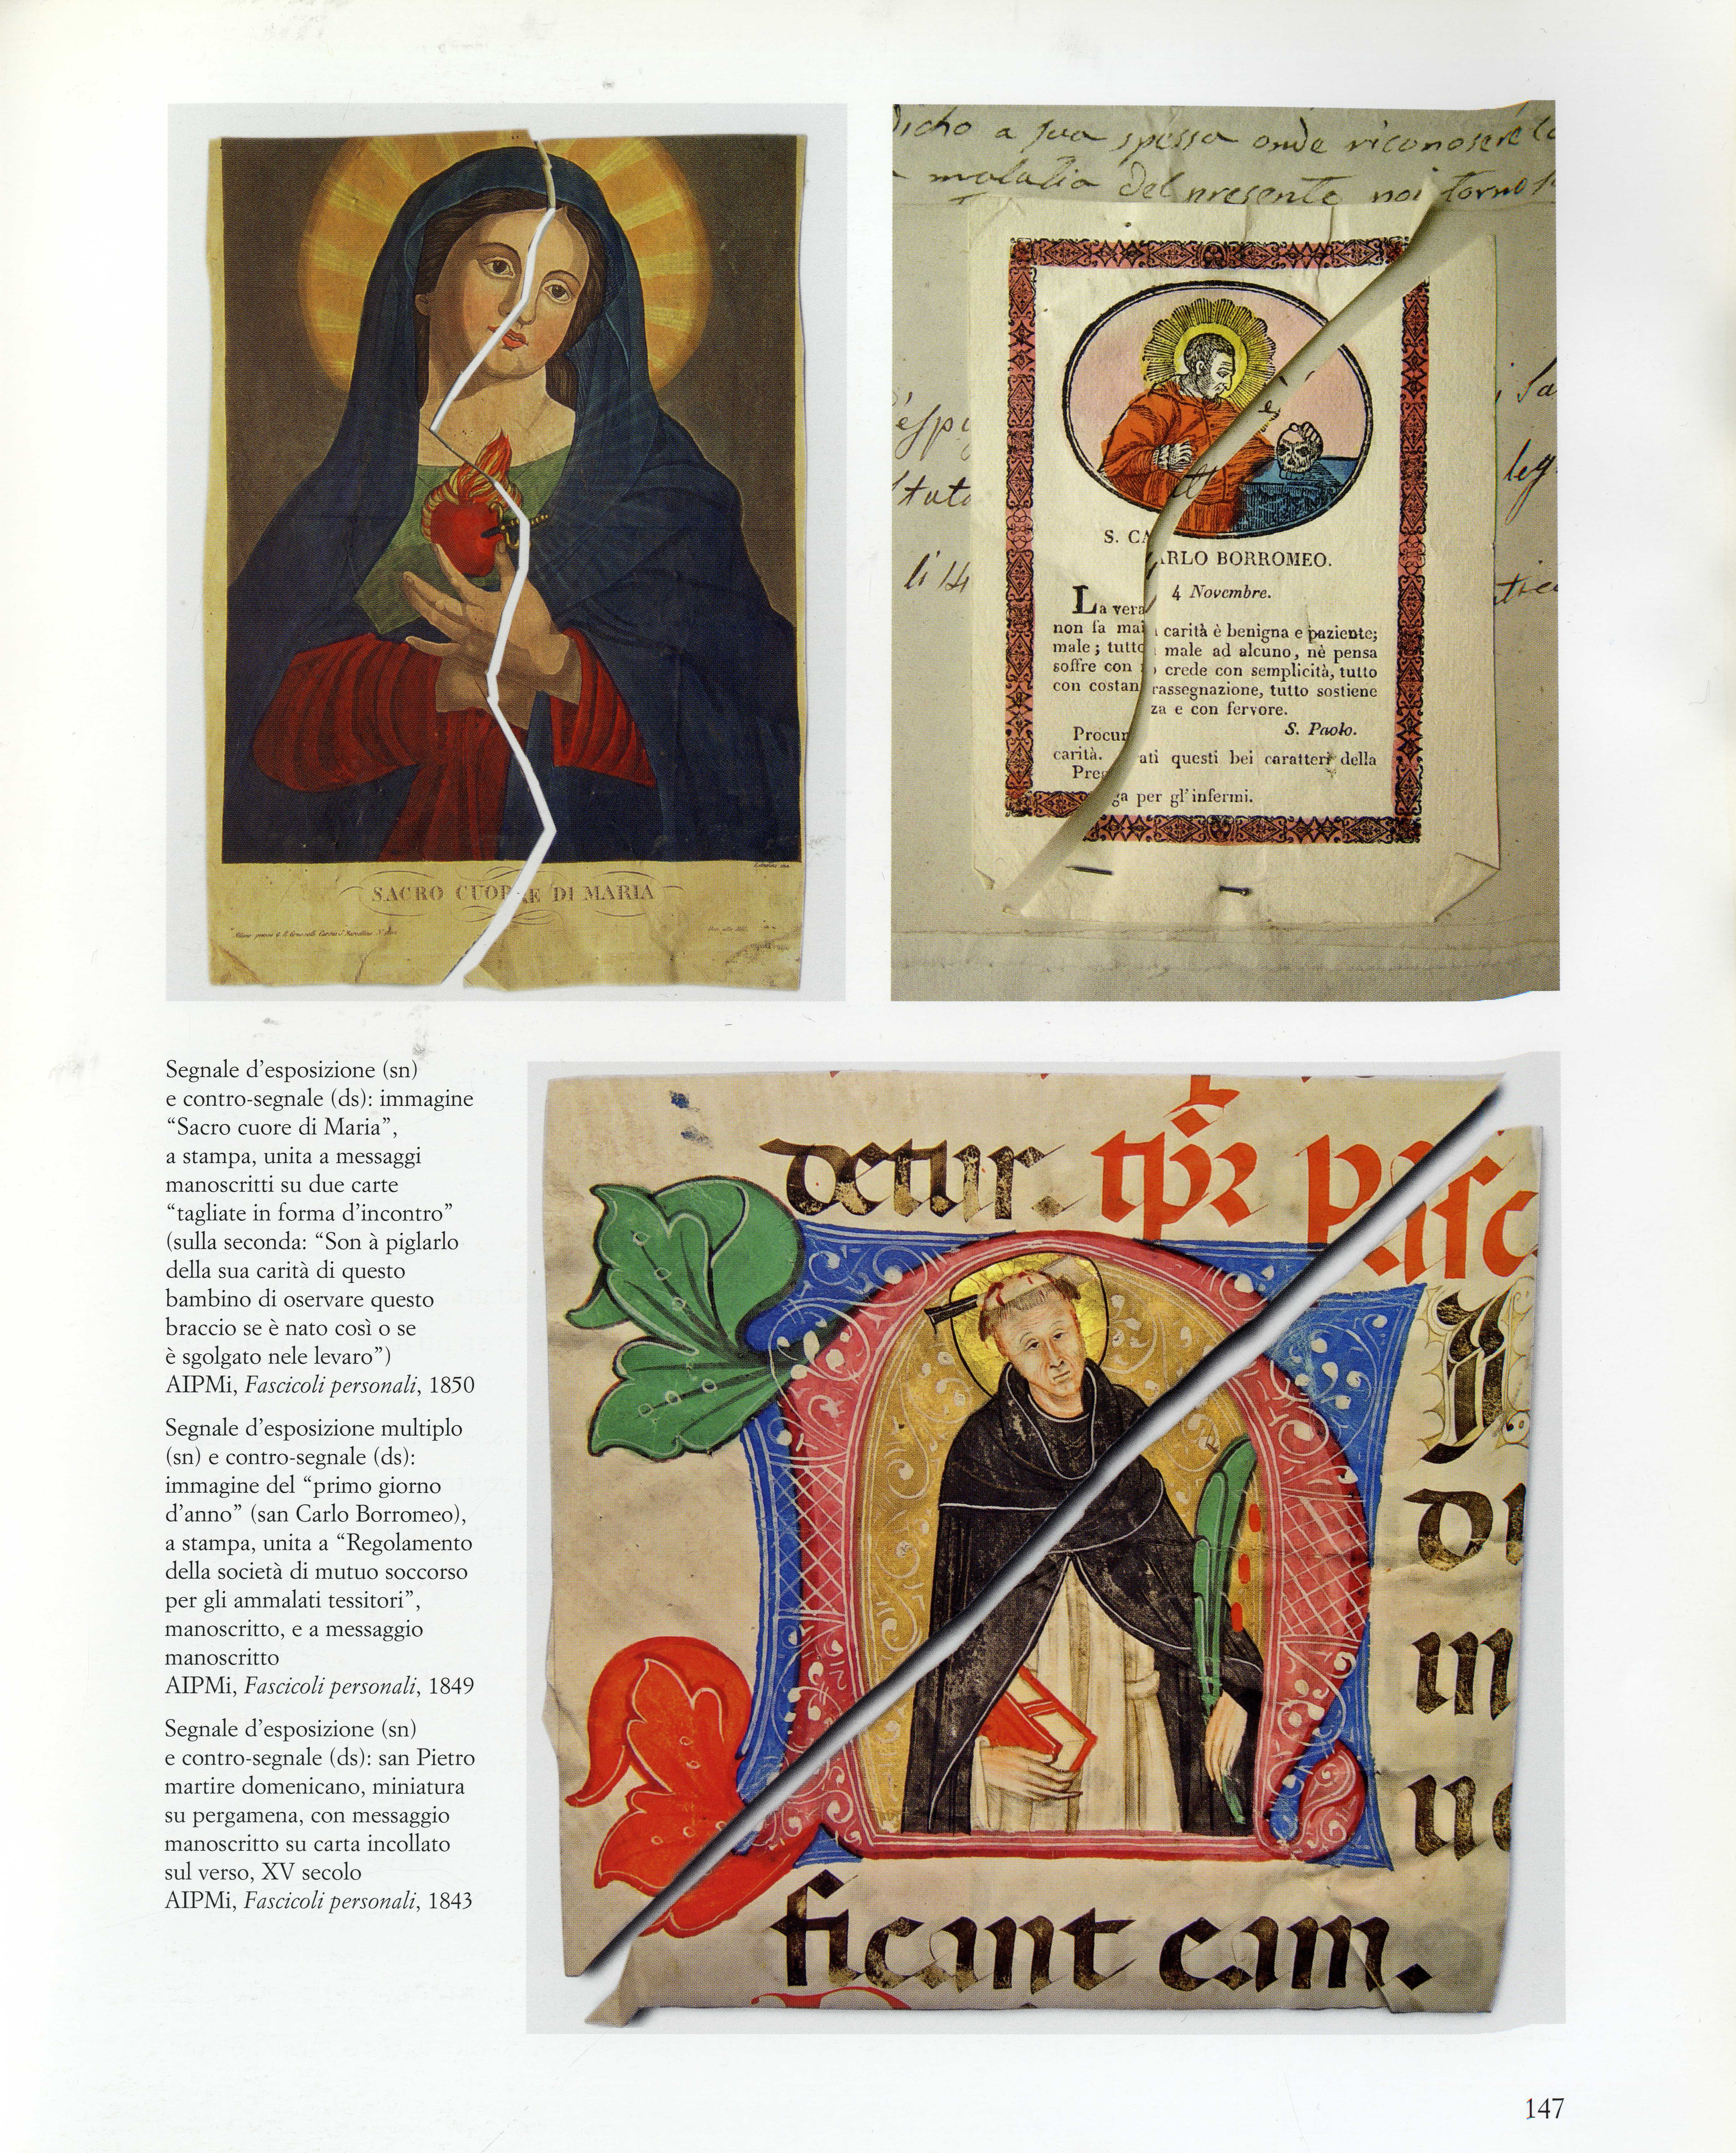 SACRO CUORE DI MARIA
dicho a sua spessa onde riconoscere la
malatia del presente noi torno
S. CARLO BORROMEO.
4 Novembre.
La vera carità è benigna e paziente;
non fa mai male ad alcuno, nè pensa
male; tutto crede con semplicità, tutto
soffre con rassegnazione, tutto sostiene
con costanza e con fervore.
S. Paolo.
Procurati questi bei caratteri della
carità.
Prega per gl'infermi.
li 14
Segnale d'esposizione (sn)
e contro-segnale (ds): immagine
“Sacro cuore di Maria”,
a stampa, unita a messaggi
manoscritti su due carte
“tagliate in forma d'incontro”
(sulla seconda: “Son à piglarlo
della sua carità di questo
bambino di oservare questo
braccio se è nato così o se
è sgolgato nele levaro”)
AIPMi, Fascicoli personali, 1850
Segnale d'esposizione multiplo
(sn) e contro-segnale (ds):
immagine del “primo giorno
d'anno” (san Carlo Borromeo),
a stampa, unita a “Regolamento
della società di mutuo soccorso
per gli ammalati tessitori”,
manoscritto, e a messaggio
manoscritto
AIPMi, Fascicoli personali, 1849
Segnale d'esposizione (sn)
e contro-segnale (ds): san Pietro
martire domenicano, miniatura
su pergamena, con messaggio
manoscritto su carta incollato
sul verso, XV secolo
AIPMi, Fascicoli personali, 1843
detur. tpr pasc
di
in
ficant eam.
147